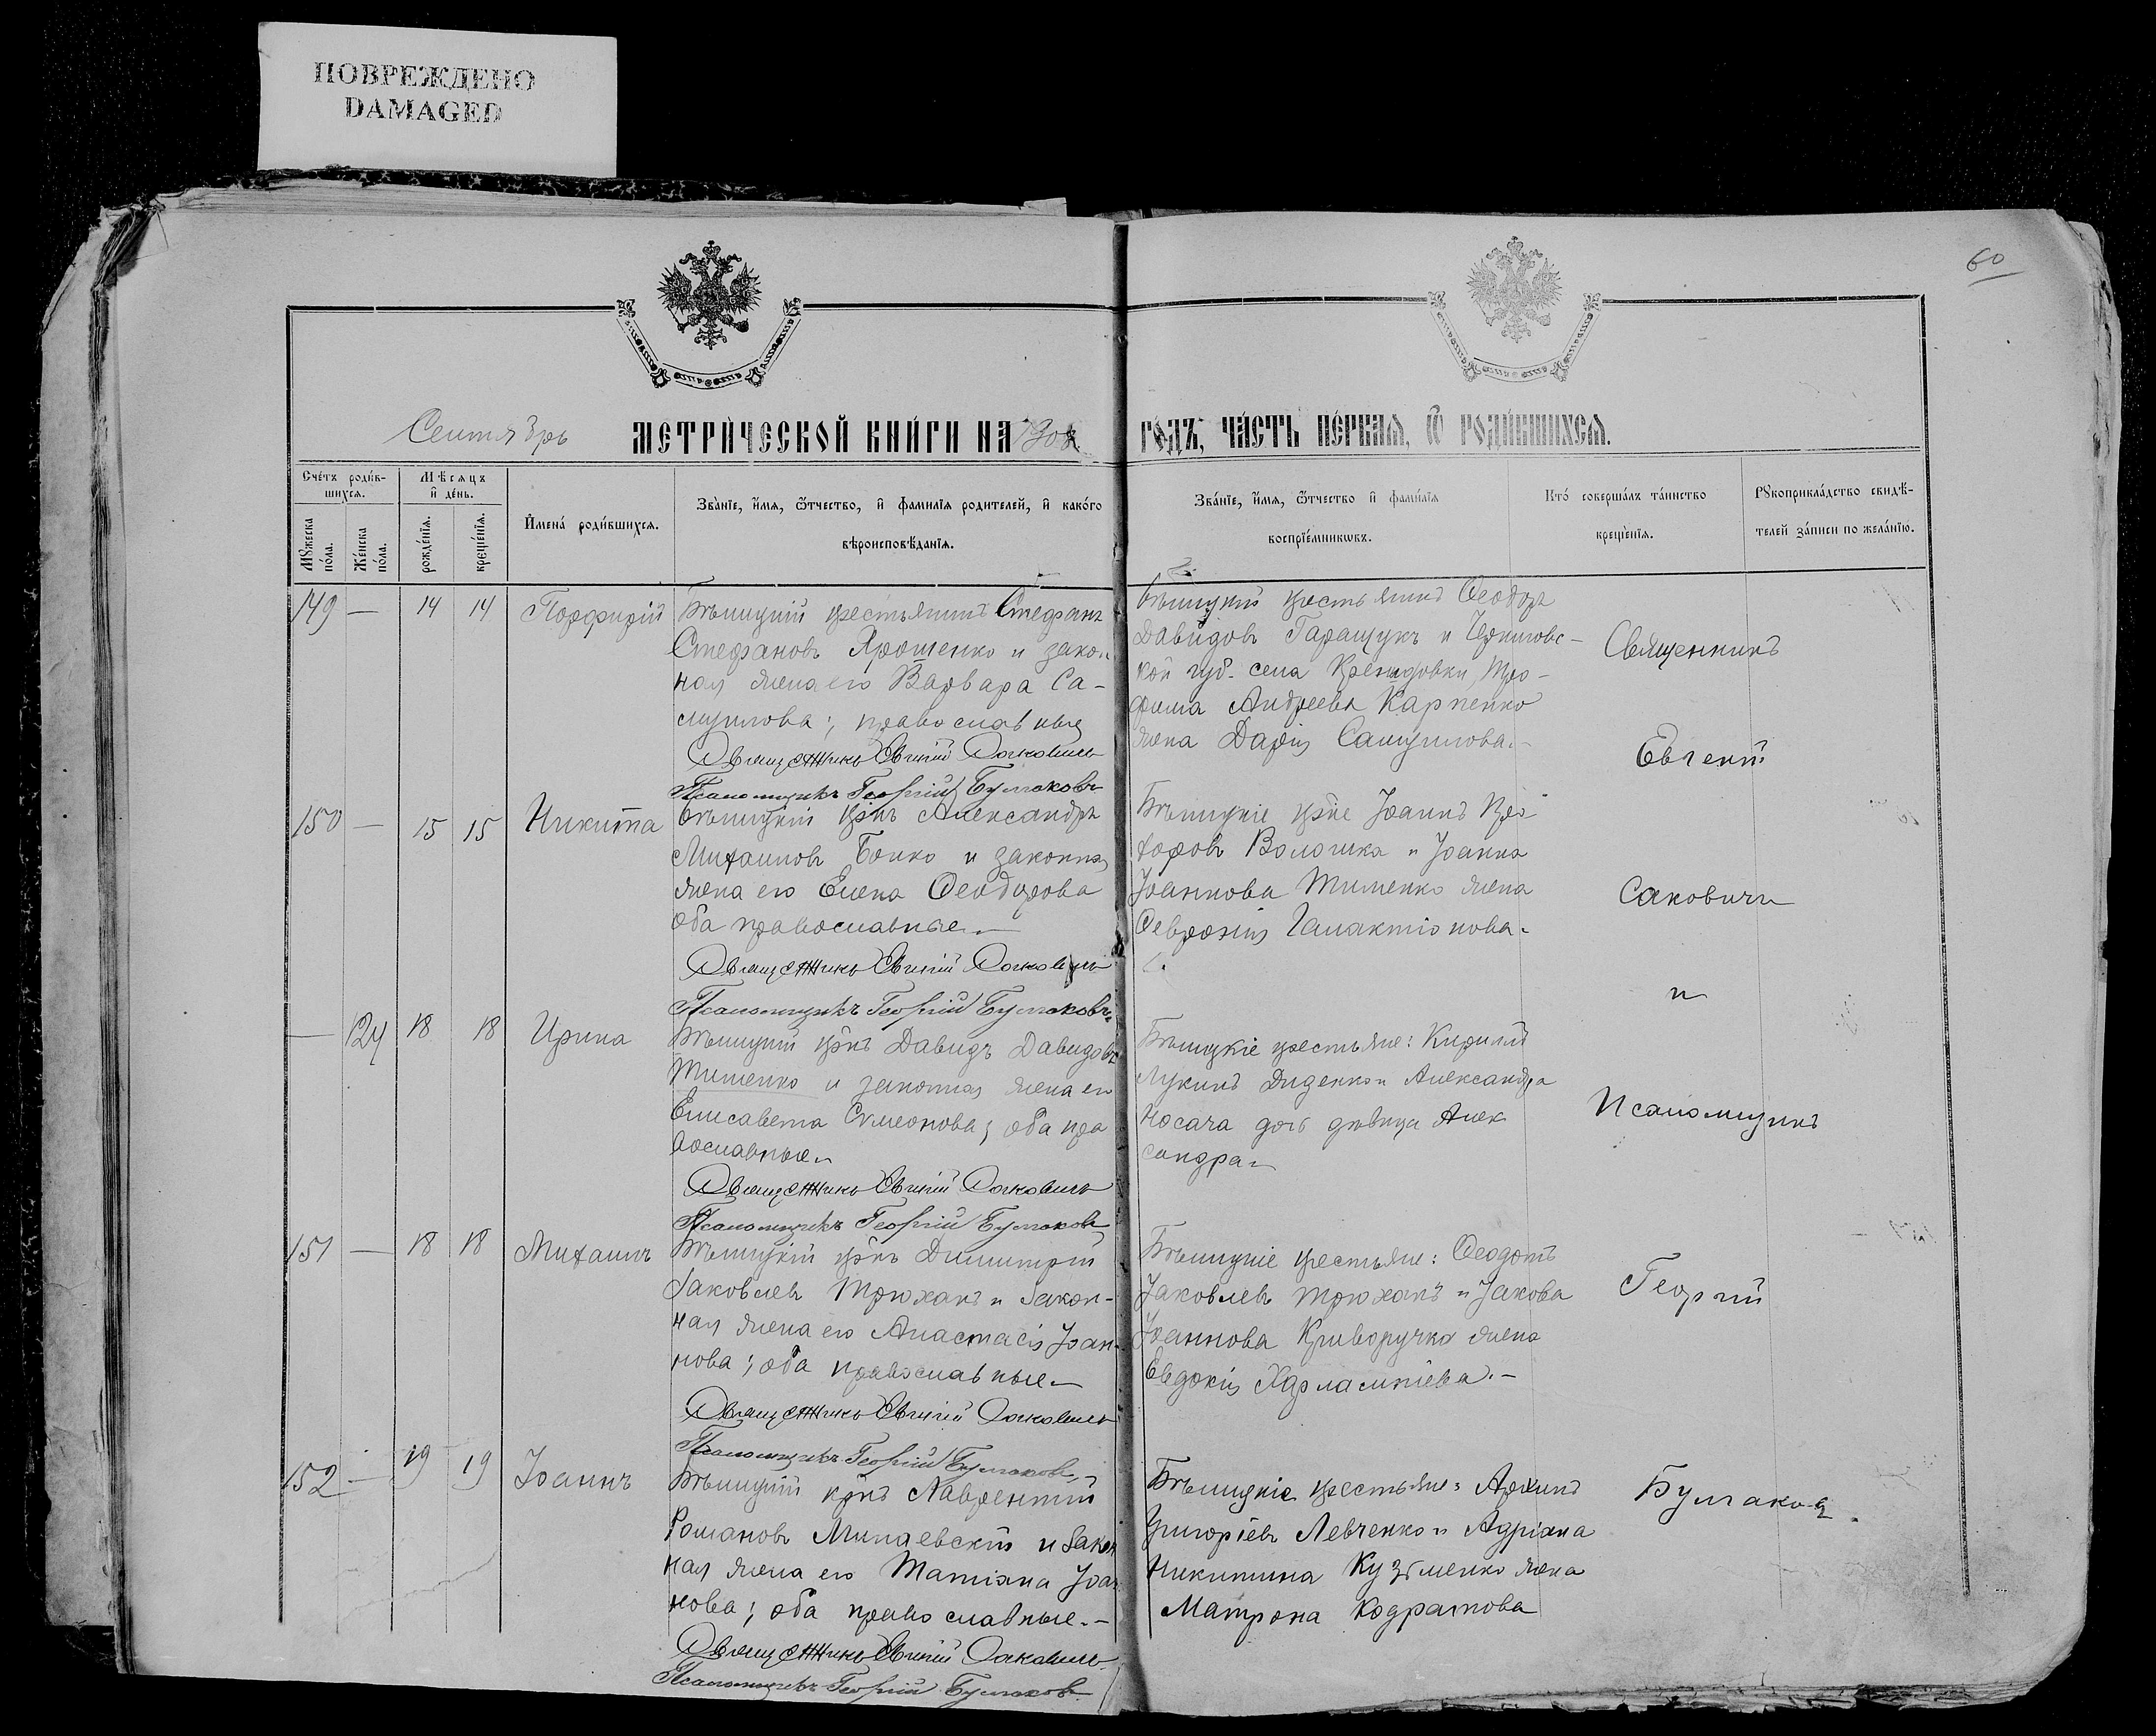 ПОВРЕЖДЕНО
DAMAGED
60
Сентябрь
МЕТРИ́ЧЕСКОЙ КНИ́ГИ НА 1908
ГО́ДЪ, ЧА́СТЬ ПЕ́РВАЯ, Ѿ РОДИ́ВШИХСЯ.
Сче́тъ роди́в-
шихся.
Мꙋ́жеска по́ла.
Же́нска по́ла.
Мѣ́сяцъ
и҆ де́нь.
рожде́нїѧ.
креще́нїѧ.
И҆мена́ роди́вшихся.
Зва́нїе, и҆́мя, ѻ҆́тчество, и҆ фами́лїя роди́телей, и҆ како́го
вѣроисповѣ́данїя.
Зва́нїе, и҆́мя, ѻ҆́тчество и҆ фами́лїя
воспрїе́мникѡвъ.
Кто́ соверша́лъ та́инство
креще́нїя.
Рꙋкоприкла́дство свидѣ́-
телей за́писи по жела́нїю.
149 — 14 14 Порфирій
Бѣлицкій крестьянинъ Стефанъ
Стефановъ Ярошенко и закон
ная жена его Варвара Са-
муилова; православные
Священникъ Евгеній Саковичъ
Псаломщикъ Георгій Булгаковъ
Бѣлицкій крестьянинъ Ѳеодоръ
Давидовъ Гаращукъ и Черниговс-
кой губ. села Тро-
фима Андреева Карпенко
жена Дарія Самуилова.-
150 — 15 15 Никита
Бѣлицкій кр-нъ Александръ
Михаиловъ Бойко и законная
жена его Елена Ѳеодорова
оба православные.—
Священникъ Евгеній Саковичъ
Псаломщикъ Георгій Булгаковъ
Бѣлицкіе кр-не Іоаннъ Про
хоровъ Волошка и Іоанна
Іоаннова Тименко жена
Ѳевронія Галактіонова.
— 124 18 18 Ирина
Бѣлицкій кр-нъ Давидъ Давидовъ
Тименко и законная жена его
Елисавета Сѵмеонова; оба пра
вославные.
Священникъ Евгеній Саковичъ
Псаломщикъ Георгій Булгаковъ
Бѣлицкіе крестьяне: Кириллъ
Лукинъ Диденко и Александра
Носача дочь дѣвица Алек
сандра.
151 — 18 18 Михаилъ
Бѣлицкій кр-нъ Димитрій
Іаковлевъ Трюханъ и закон-
ная жена его Анастасія Іоан-
нова; оба православные.
Священникъ Евгеній Саковичъ
Псаломщикъ Георгій Булгаковъ
Бѣлицкіе крестьяне: Ѳеодотъ
Іаковлевъ Трюханъ и Іакова
Іоаннова Криворучко жена
Евдокія Харлампіева.-
152 — 19 19 Іоаннъ
Бѣлицкій кр-нъ Лаврентій
Романовъ и закон
ная жена его Татіана Іоан
нова; оба православные.-
Священникъ Евгеній Саковичъ
Псаломщикъ Георгій Булгаковъ
Бѣлицкіе крестьяне: Архипъ
Григоріевъ Левченко и Адріана
Никитина Кузьменко жена
Матрона Кодратова
Священникъ
Евгеній
Саковичъ
и
Псаломщикъ
Георгій
Булгаковъ.